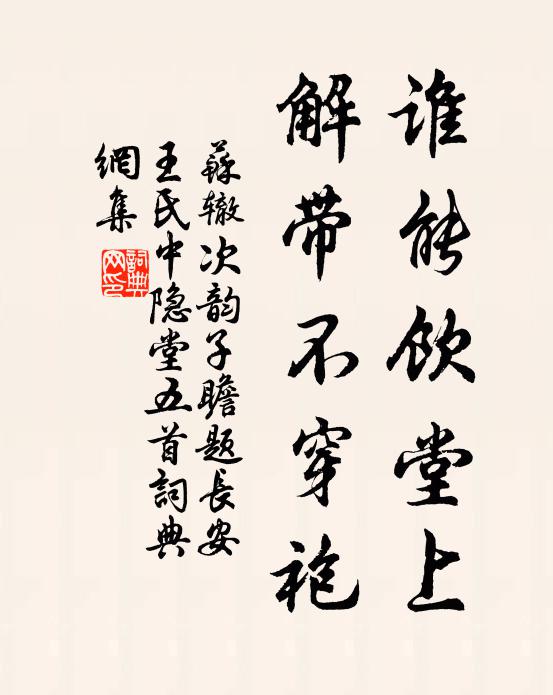 谁能饮堂上
解带不穿袍
蘇辙次韵子瞻题長安
王氏中隐堂五首詞典
網集
詞典网印